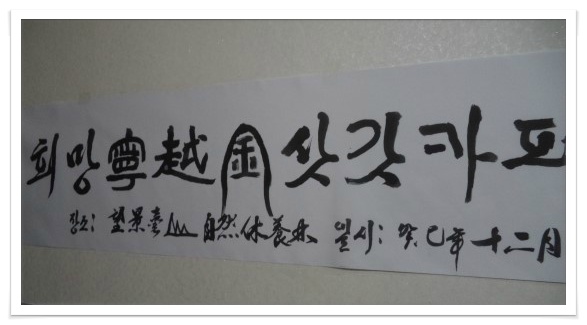 희망寧越金삿갓카프
장소: 望景臺山自然休養林 일시: 癸巳年十二月